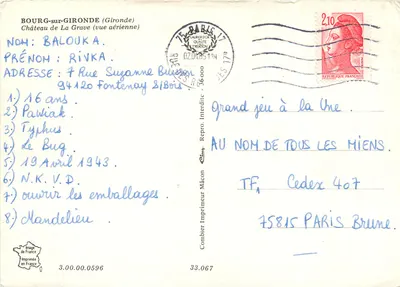 BOURG-sur-GIRONDE (Gironde)
Château de La Grave (vue aérienne)
NOM: BALOUKA.
PRÉNOM: RIVKA.
ADRESSE: 7 Rue Suzanne Buisson
94120 Fontenay S/Bois
1.) 16 ans.
2.) Pawiak.
3.) Typhus
4.) Le Bug
5.) 19 Avril 1943
6.) N.K.V.D.
7.) ouvrir les emballages.
8.) Mandelieu
Image de France
Imprimée en France
3.00.00.0596
33.067
Combier Imprimeur Mâcon
Repro. Interdite
75 PARIS 17
2,10
Grand jeu à la Une.
AU NOM DE TOUS LES MIENS.
TF1 Cedex 407
75815 PARIS Brune.